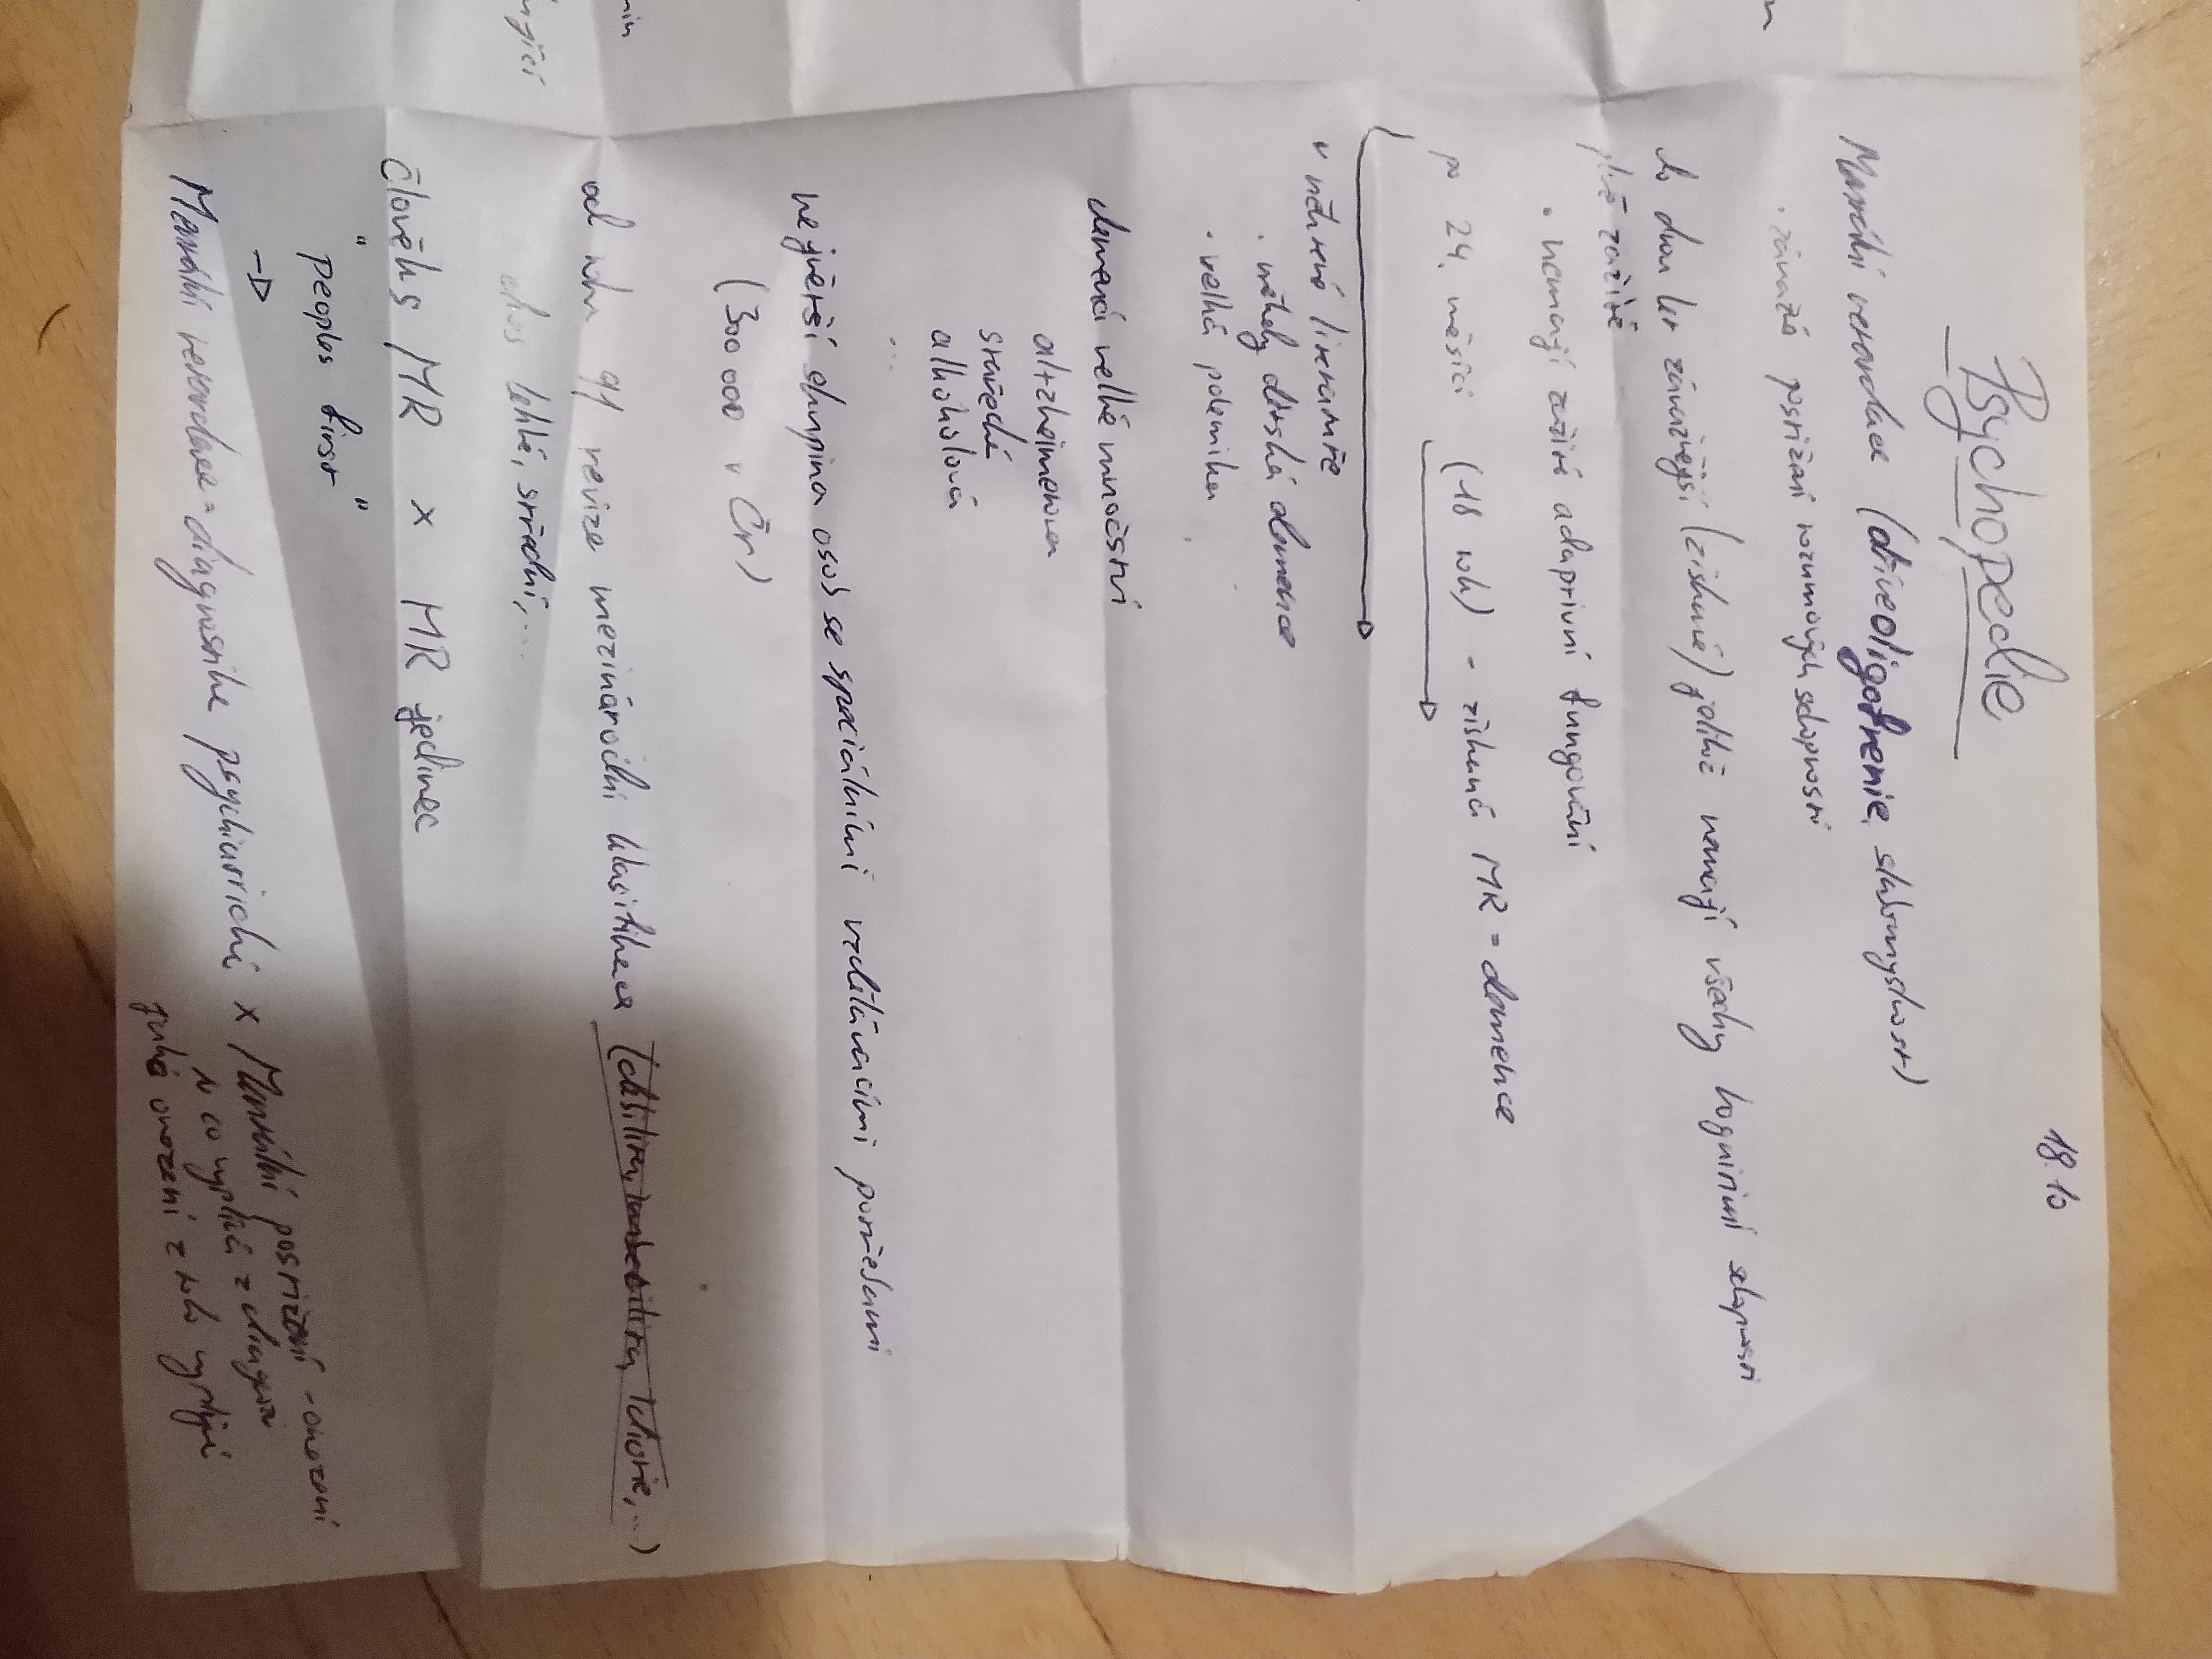 18.10
Psychopedie
Mentální retardace (dříve oligofrenie, slabomyslnost)
· závažné postižení rozumových schopností
do dvou let závažnější (získané) jelikož nemají všechny kognitivní schopnosti
plně zažité
· nemají zažité adaptivní fungování
po 24. měsíci (18 roku) - získaná MR = demence
v některé literatuře
· někdy dětská demence
· velká polemika
demencí velké množství
alzheimerova
stařecká
alkoholová
...
největší skupina osob se speciálními vzdělávacími potřebami
(300 000 v Čr)
od roku 91 revize mezinárodní klasifikace (debilita, imbecilita, idiocie,...)
dnes lehké, střední,...
Člověk s MR x MR jedinec
"peoples first"
→
Mentální retardace = diagnostika psychiatrická x Mentální postižení - omezení
to co vyplívá z diagnozi
jaká omezení z toho vyplývá